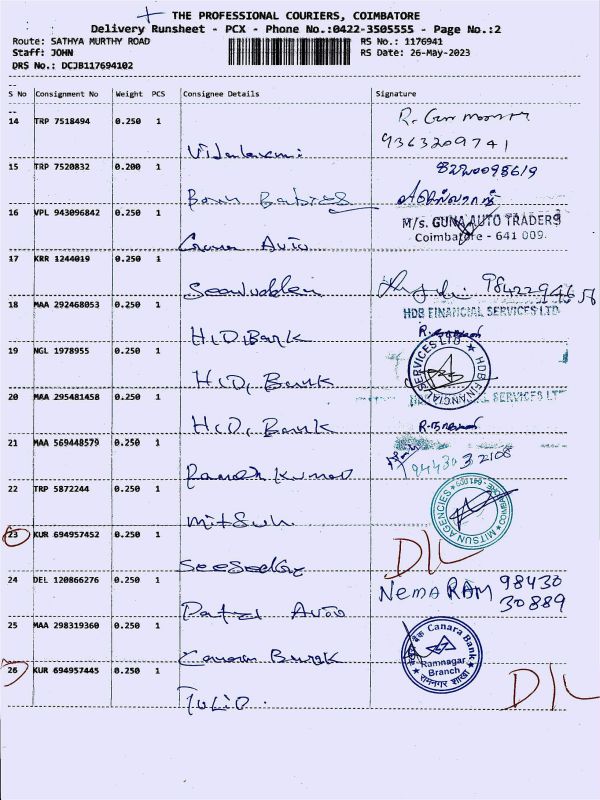 THE PROFESSIONAL COURIERS, COIMBATORE
Delivery Runsheet - PCX - Phone No.:0422-3505555 - Page No.:2
Route: SATHYA MURTHY ROAD RS No.: 1176941
Staff: JOHN RS Date: 26-May-2023
DRS No.: DCJB117694102
S No Consignment No Weight PCS Consignee Details Signature
14 TRP 7518494 0.250 1
9363209741
15 TRP 7520832 0.200 1
16 VPL 943096842 0.250 1
M/s. GUNA AUTO TRADERS
Coimbatore - 641 009.
Auto
17 KRR 1244019 0.250 1
18 MAA 292468053 0.250 1
HDB FINANCIAL SERVICES LTD
H.D. Bank
19 NGL 1978955 0.250 1
HDB FINANCIAL SERVICES LTD
H.D. Bank
20 MAA 295481458 0.250 1
HDB FINANCIAL SERVICES LT
H.D. Bank
21 MAA 569448579 0.250 1
Ramesh Kumar
22 TRP 5872244 0.250 1
MITSUN AGENCIES
Mitsun
23 KUR 694957452 0.250 1
D/L
24 DEL 120866276 0.250 1
Nema RAM 98430
30889
Patel Auto
25 MAA 298319360 0.250 1
केनरा बैंक Canara Bank
Ramnagar
Branch
रामनगर शाखा
Canara Bank
26 KUR 694957445 0.250 1
D/L